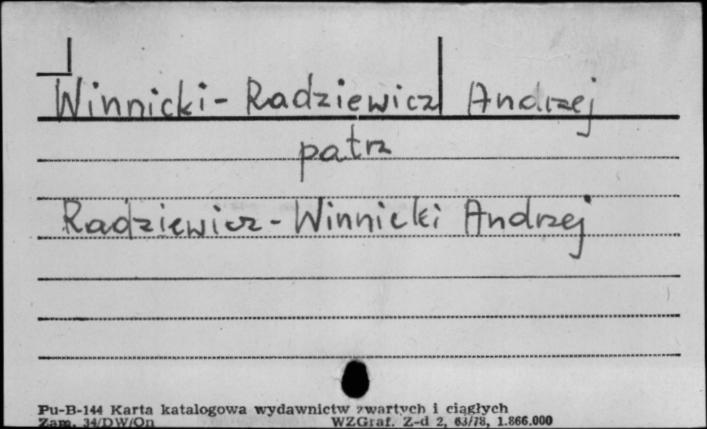 Winnicki-Radziewicz Andrzej
patrz
Radziewicz-Winnicki Andrzej
Pu-B-144 Karta katalogowa wydawnictw zwartych i ciągłych
Zam. 34/DW/On WZGraf. Z-d 2, 63/78, 1.866.000